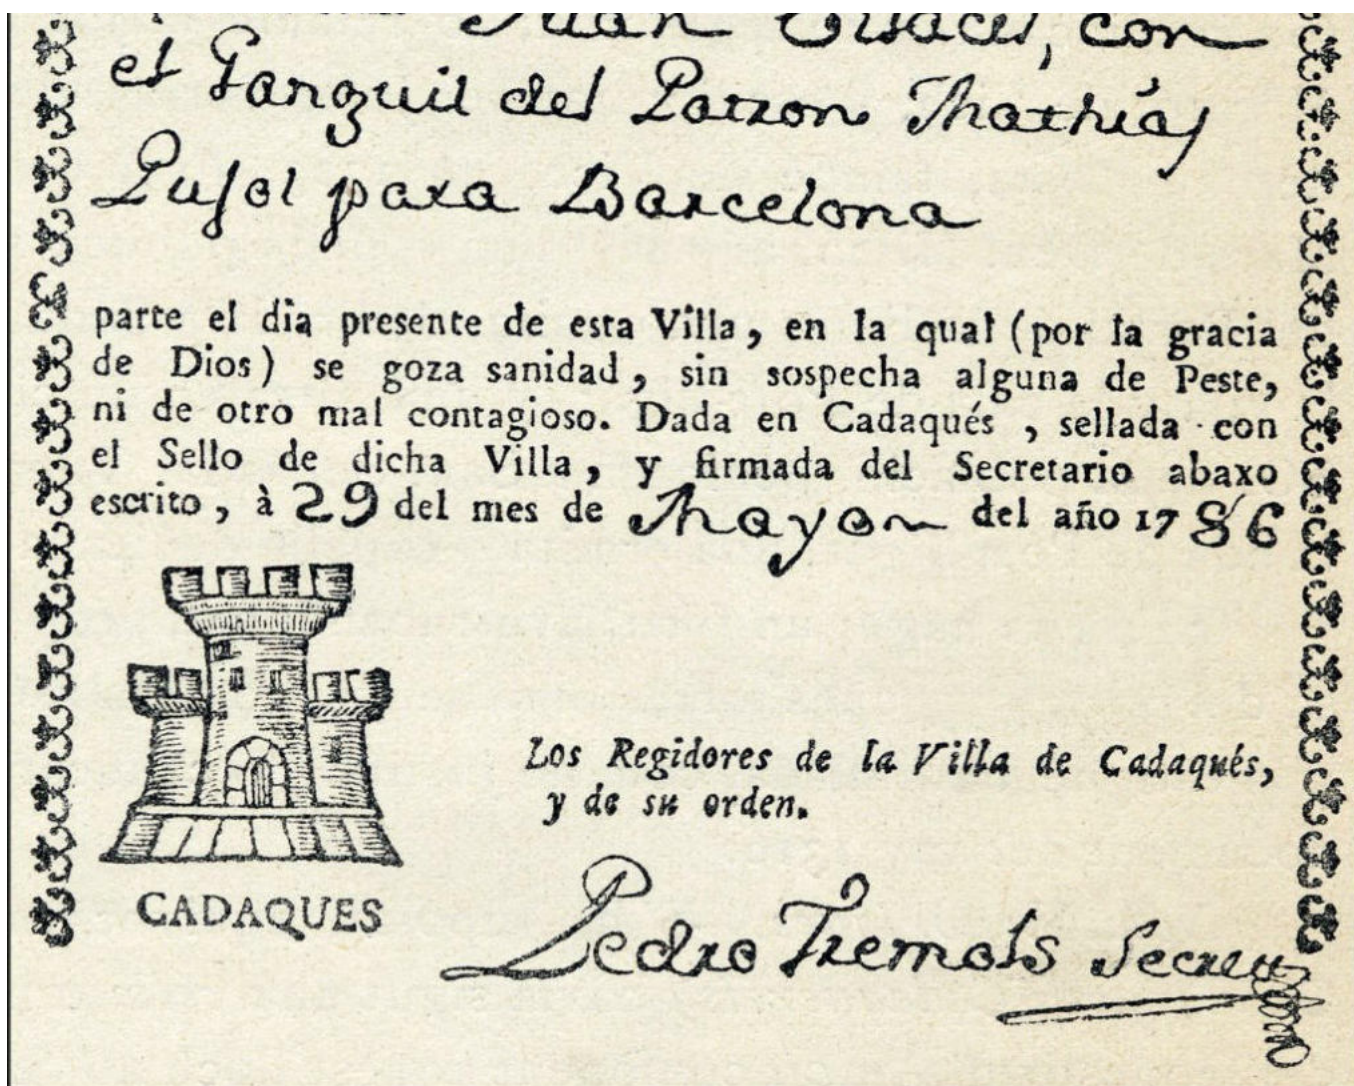 Juan con
el Ganguil del Patron Mathias
Pujol para Barcelona
parte el dia presente de esta Villa, en la qual (por la gracia
de Dios) se goza sanidad, sin sospecha alguna de Peste,
ni de otro mal contagioso. Dada en Cadaqués, sellada con
el Sello de dicha Villa, y firmada del Secretario abaxo
escrito, à 29 del mes de Mayo del año 1786
CADAQUES
Los Regidores de la Villa de Cadaqués,
y de su orden.
Pedro Tremols